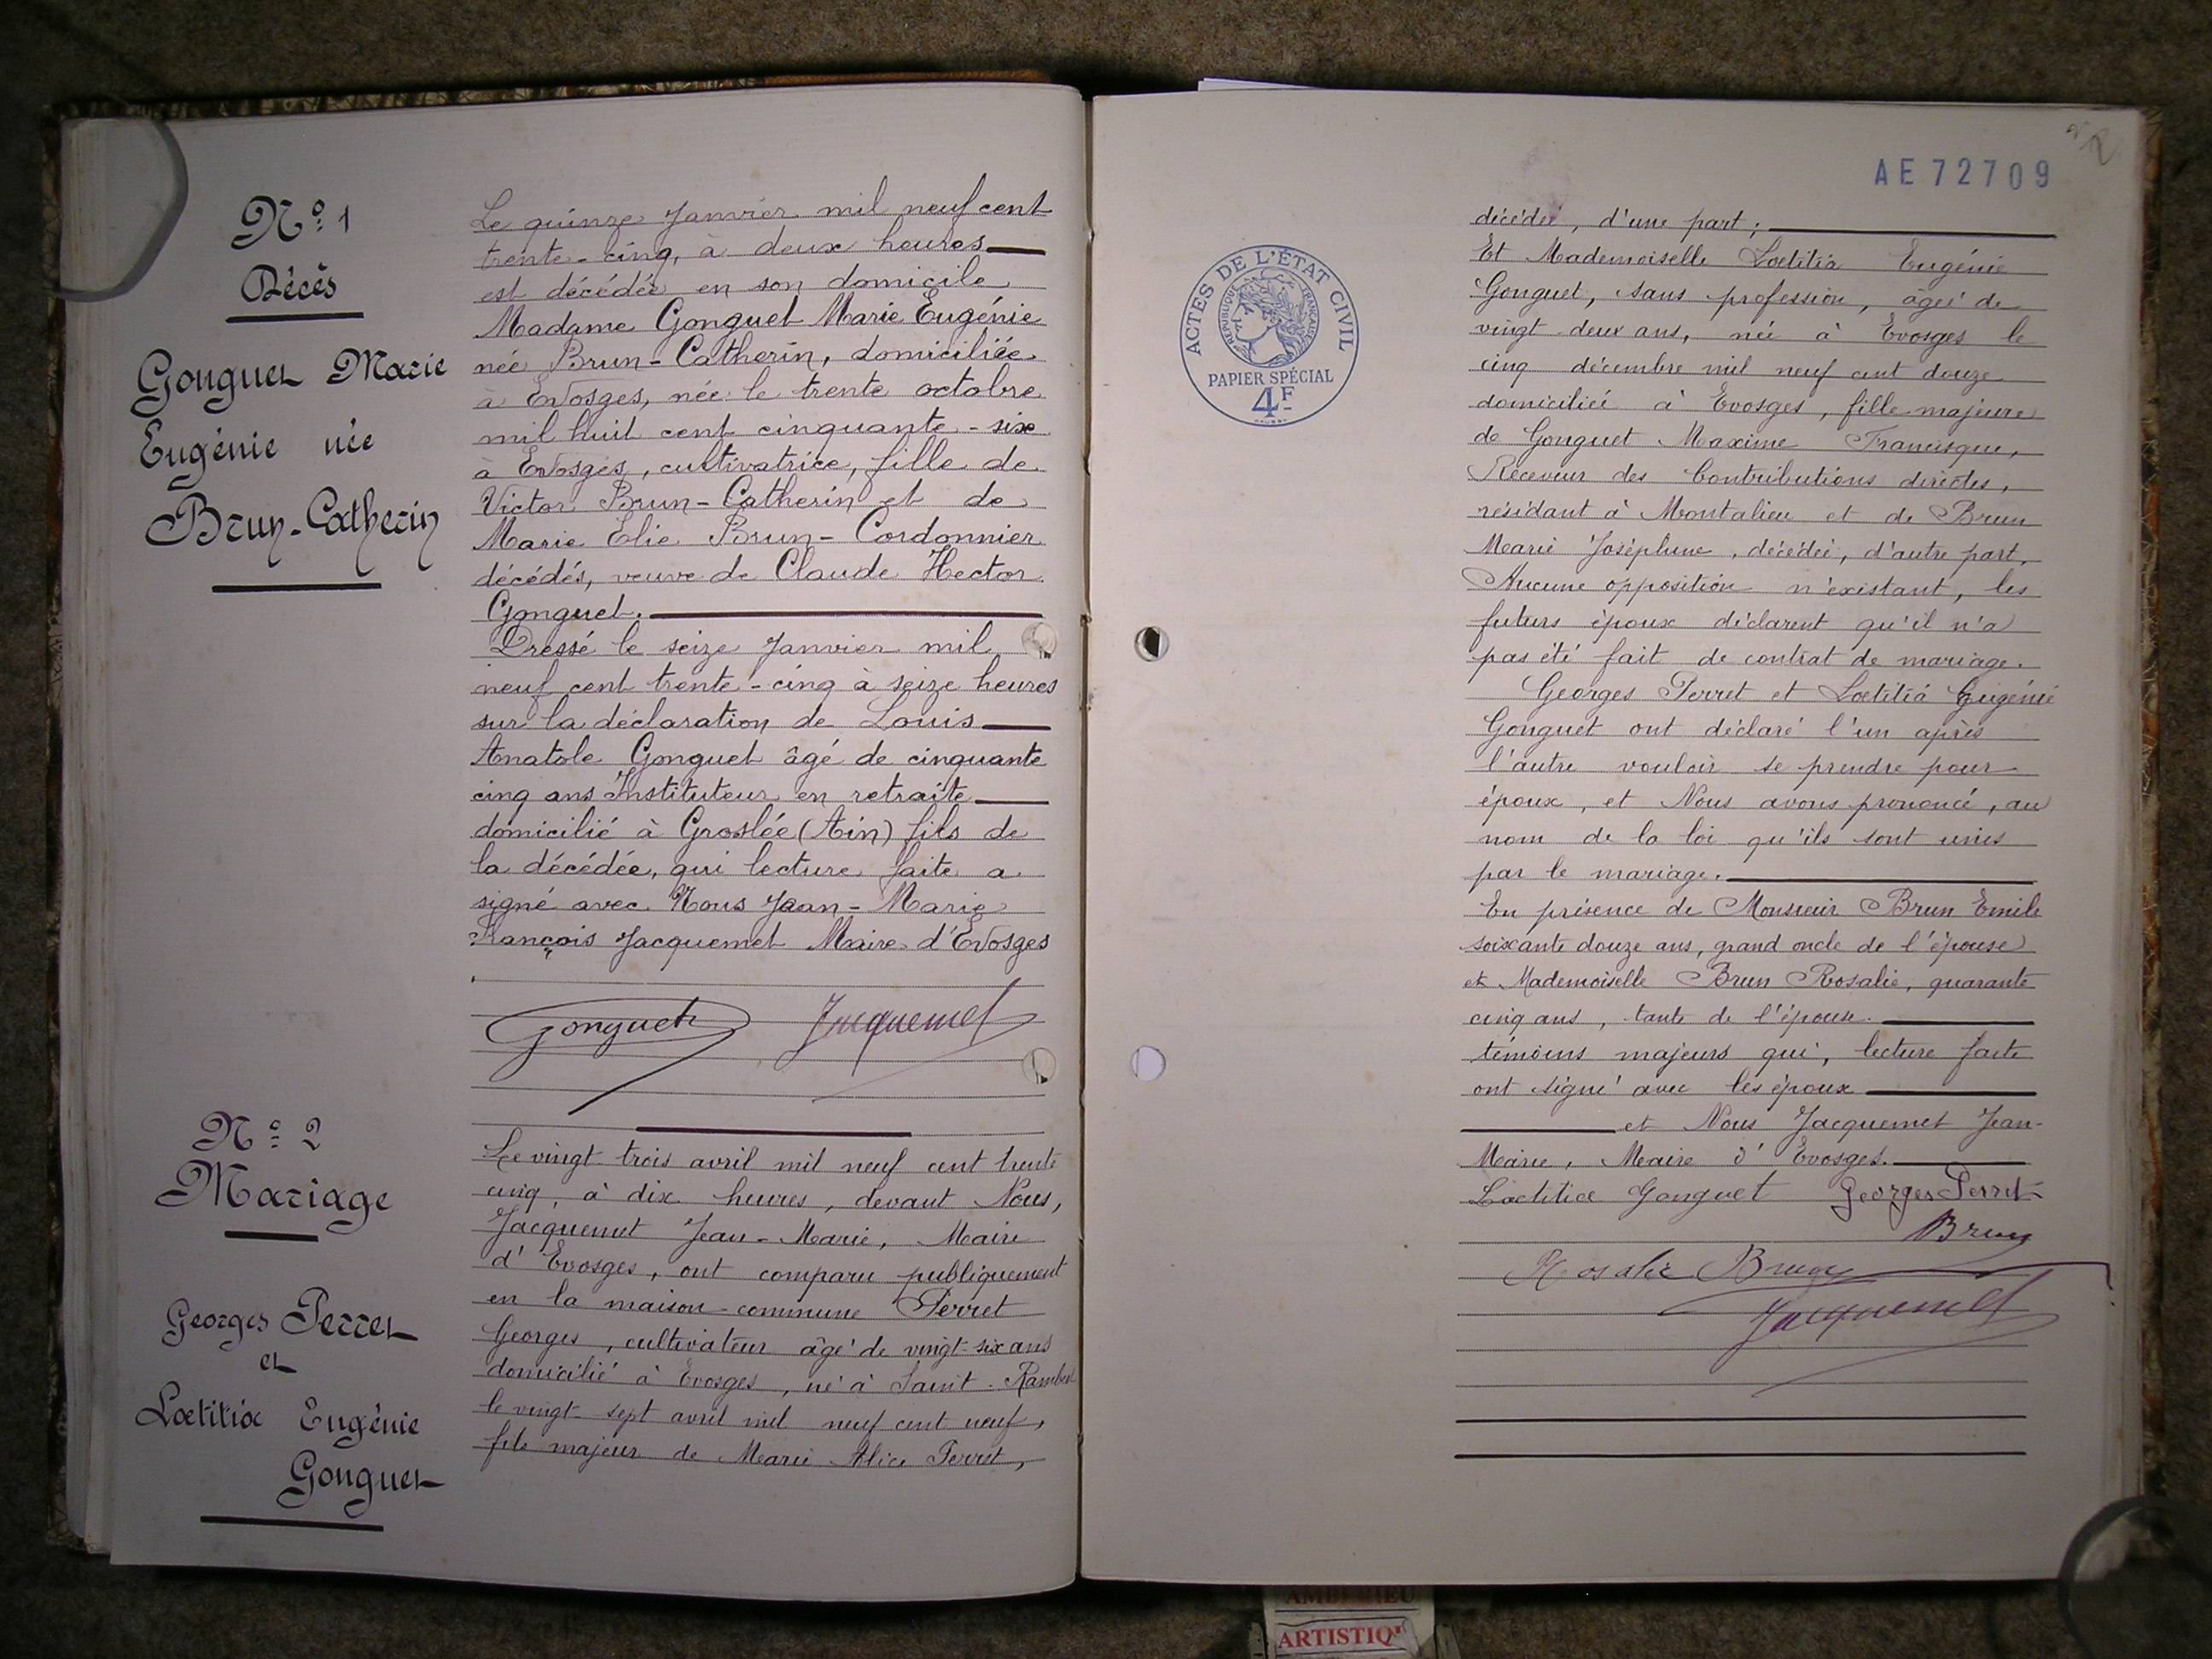 N° 1
Décès
Gonguet Marie
Eugénie née
Brun-Catherin
Le quinze Janvier mil neuf cent
trente-cinq, à deux heures
est décédée en son domicile
Madame Gonguet Marie Eugénie
née Brun-Catherin, domiciliée
à Evosges, née le trente octobre
mil huit cent cinquante-six
à Evosges, cultivatrice, fille de
Victor Brun-Catherin et de
Marie Élie Brun-Cordonnier
décédés, veuve de Claude Hector
Gonguet.
Dressé le seize Janvier mil
neuf cent trente-cinq à seize heures
sur la déclaration de Louis
Anatole Gonguet âgé de cinquante
cinq ans Instituteur en retraite
domicilié à Groslée (Ain) fils de
la décédée, qui lecture faite a
signé avec Nous Jean-Marie
François Jacquemet Maire d'Evosges
Gonguet Jacquemet
N° 2
Mariage
Georges Perret
et
Loetitia Eugénie
Gonguet
Le vingt-trois avril mil neuf cent trente
cinq, à dix heures, devant Nous,
Jacquemet Jean-Marie, Maire
d'Evosges, ont comparu publiquement
en la maison-commune Perret
Georges, cultivateur âgé de vingt-six ans
domicilié à Evosges, né à Saint-Rambert
le vingt-sept avril mil neuf cent neuf,
fils majeur de Marie Alice Perret,
AE 72709
2
ACTES DE L'ÉTAT CIVIL
RÉPUBLIQUE FRANÇAISE
PAPIER SPÉCIAL
4F
décédée, d'une part;
Et Mademoiselle Loetitia Eugénie
Gonguet, sans profession, âgée de
vingt-deux ans, née à Evosges le
cinq décembre mil neuf cent douze
domiciliée à Evosges, fille majeure
de Gonguet Maxime Francisque,
Receveur des Contributions directes,
résidant à Montalieu et de Brun
Marie Joséphine, décédée, d'autre part,
Aucune opposition n'existant, les
futurs époux déclarent qu'il n'a
pas été fait de contrat de mariage.
Georges Perret et Loetitia Eugénie
Gonguet ont déclaré l'un après
l'autre vouloir se prendre pour
époux, et Nous avons prononcé, au
nom de la loi qu'ils sont unis
par le mariage.
En présence de Monsieur Brun Emile
soixante douze ans, grand oncle de l'épouse
et Mademoiselle Brun Rosalie, quarante
cinq ans, tante de l'épouse.
témoins majeurs qui, lecture faite
ont signé avec les époux
et Nous Jacquemet Jean-
Marie, Maire d'Evosges.
Loetitia Gonguet Georges Perret
Brun
Rosalie Brun
Jacquemet
AMBERIEU
ARTISTIQ